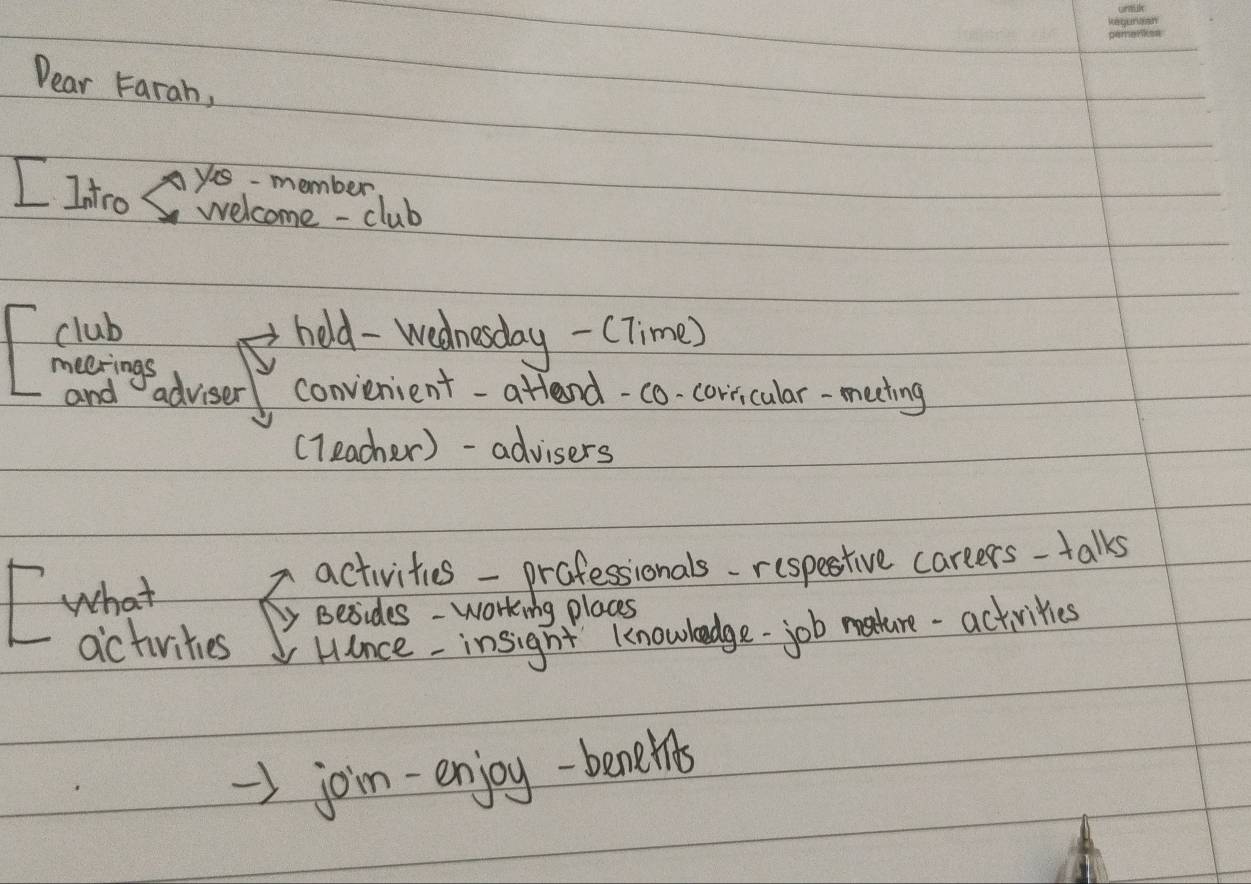 untuk
kegunaan
pemeriksa
Dear Farah,
Intro yes - member
welcome - club
club
meerings
and adviser
held - Wednesday - (Time)
convenient - attend - co-corricular - meeting
(Teacher) - advisers
What
activities
activities - professionals - respective careers - talks
Besides - working places
Hence - insight knowledge - job nature - activities
→ join - enjoy - benefits